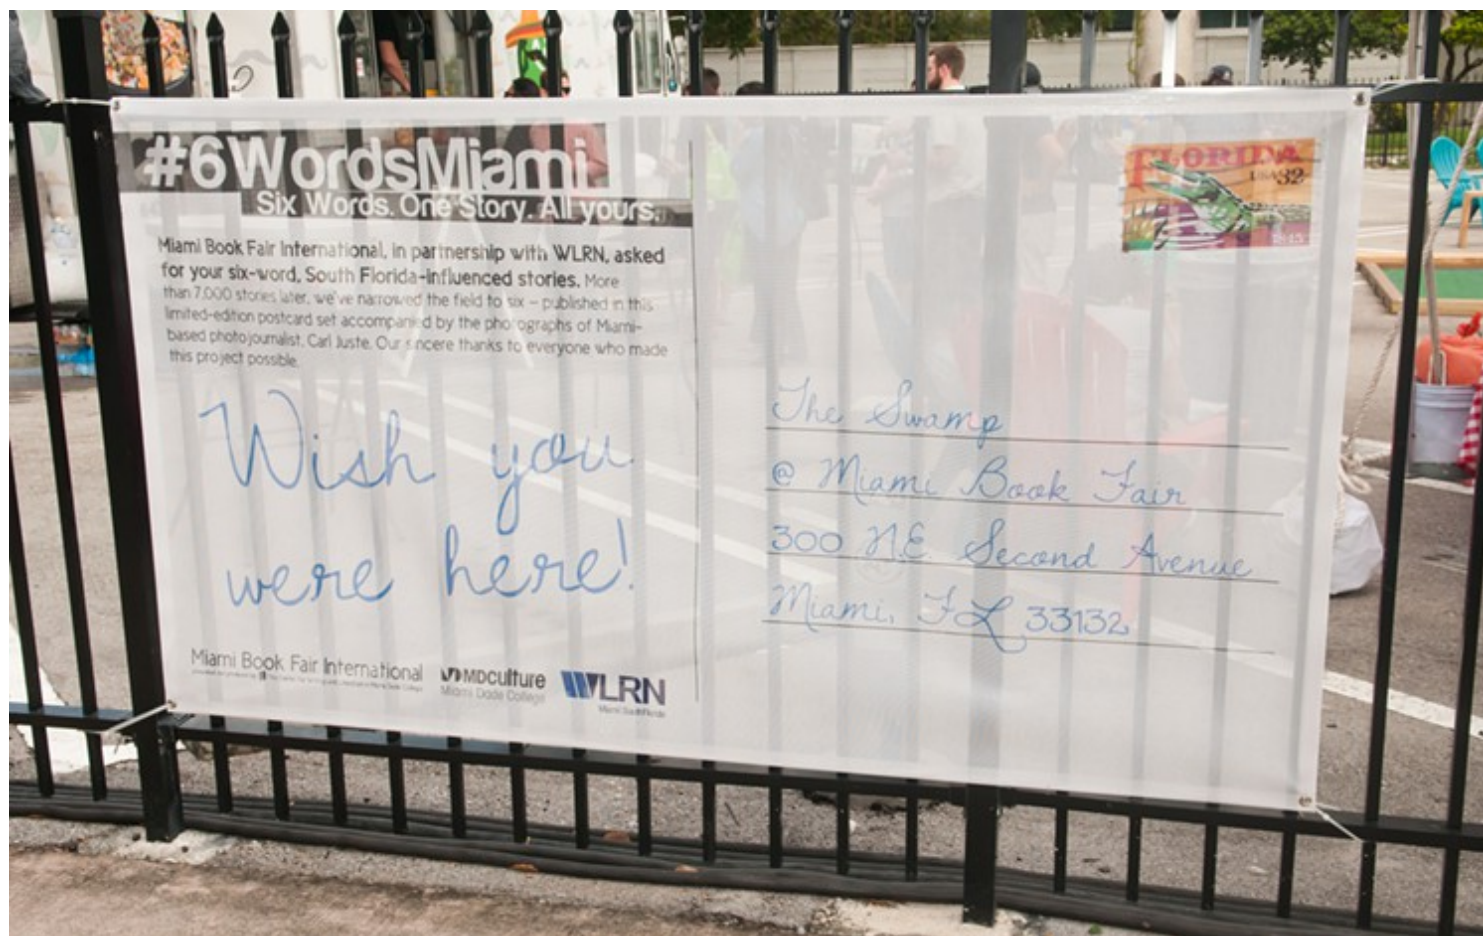 #6WordsMiami
Six Words. One Story. All yours.
Miami Book Fair International, in partnership with WLRN, asked
for your six-word, South Florida-influenced stories. More
than 7,000 stories later, we've narrowed the field to six – published in this
limited-edition postcard set accompanied by the photographs of Miami-
based photojournalist, Carl Juste. Our sincere thanks to everyone who made
this project possible.
Wish you
were here!
Miami Book Fair International
MDCulture
Miami Dade College
WLRN
FLORIDA
USA 32
1845
The Swamp
@ Miami Book Fair
300 N.E. Second Avenue
Miami, FL 33132